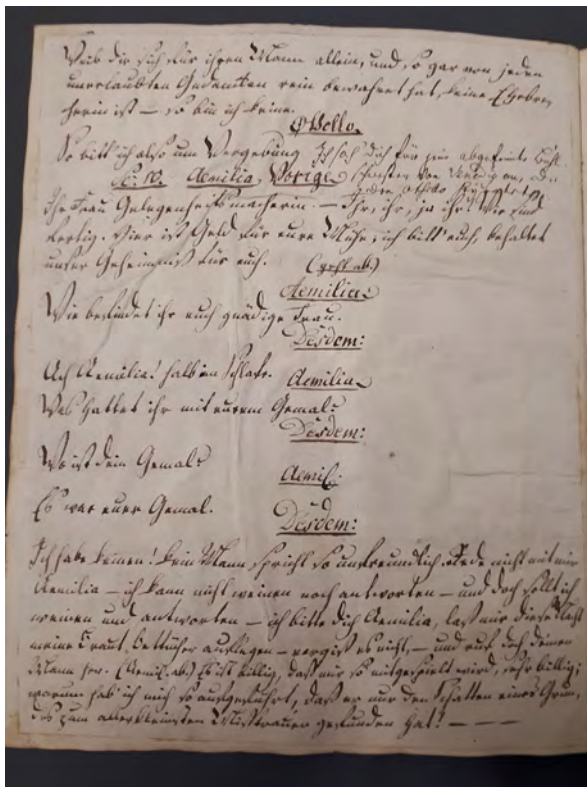 Weib die sich für ihren Mann allein, und so gar von jeden
unerlaubten Gedanken rein bewahret hat, keine Ehebre
cherin ist — so bin ich keine.
Othello.
So bitt ich also um Vergebung Ich sah dich für jene abgefeimte Buhl
Sc: 10. Aemilia, Vorige schwester von Venedig an, die
den Othello
Ihr Frau Gelegenheitsmacherin. — Ihr, ihr, ja ihr! Wir sind
fertig. Hier ist Geld für eure Mühe, ich bitt euch, behaltet
unser Geheimniß für euch. (geht ab.)
Aemilia.
Wie befindet ihr euch gnädige Frau.
Desdem:
Ach Aemilia! halb im Schlafe.
Aemilia.
Was hattet ihr mit eurem Gemal?
Desdem:
Wo ist dein Gemal?
Aemil:
Es war euer Gemal.
Desdem:
Ich habe keinen! kein Mann spricht so unfreundlich rede nicht mit mir
Aemilia — ich kann nicht weinen noch antworten — und doch sollt ich
weinen und antworten — ich bitte dich Aemilia, laß mir diese Nacht
meine Braut bettücher auflegen — vergiß es nicht, — und ruf doch deinen
Mann her. (Aemil. ab.) Es ist billig, daß mir so mitgespielt wird, sehr billig;
warum hab ich mich so aufgeführt, daß er nur den Schatten eines Grun
des zum allerkleinsten Mißtrauen gefunden hat! — — —